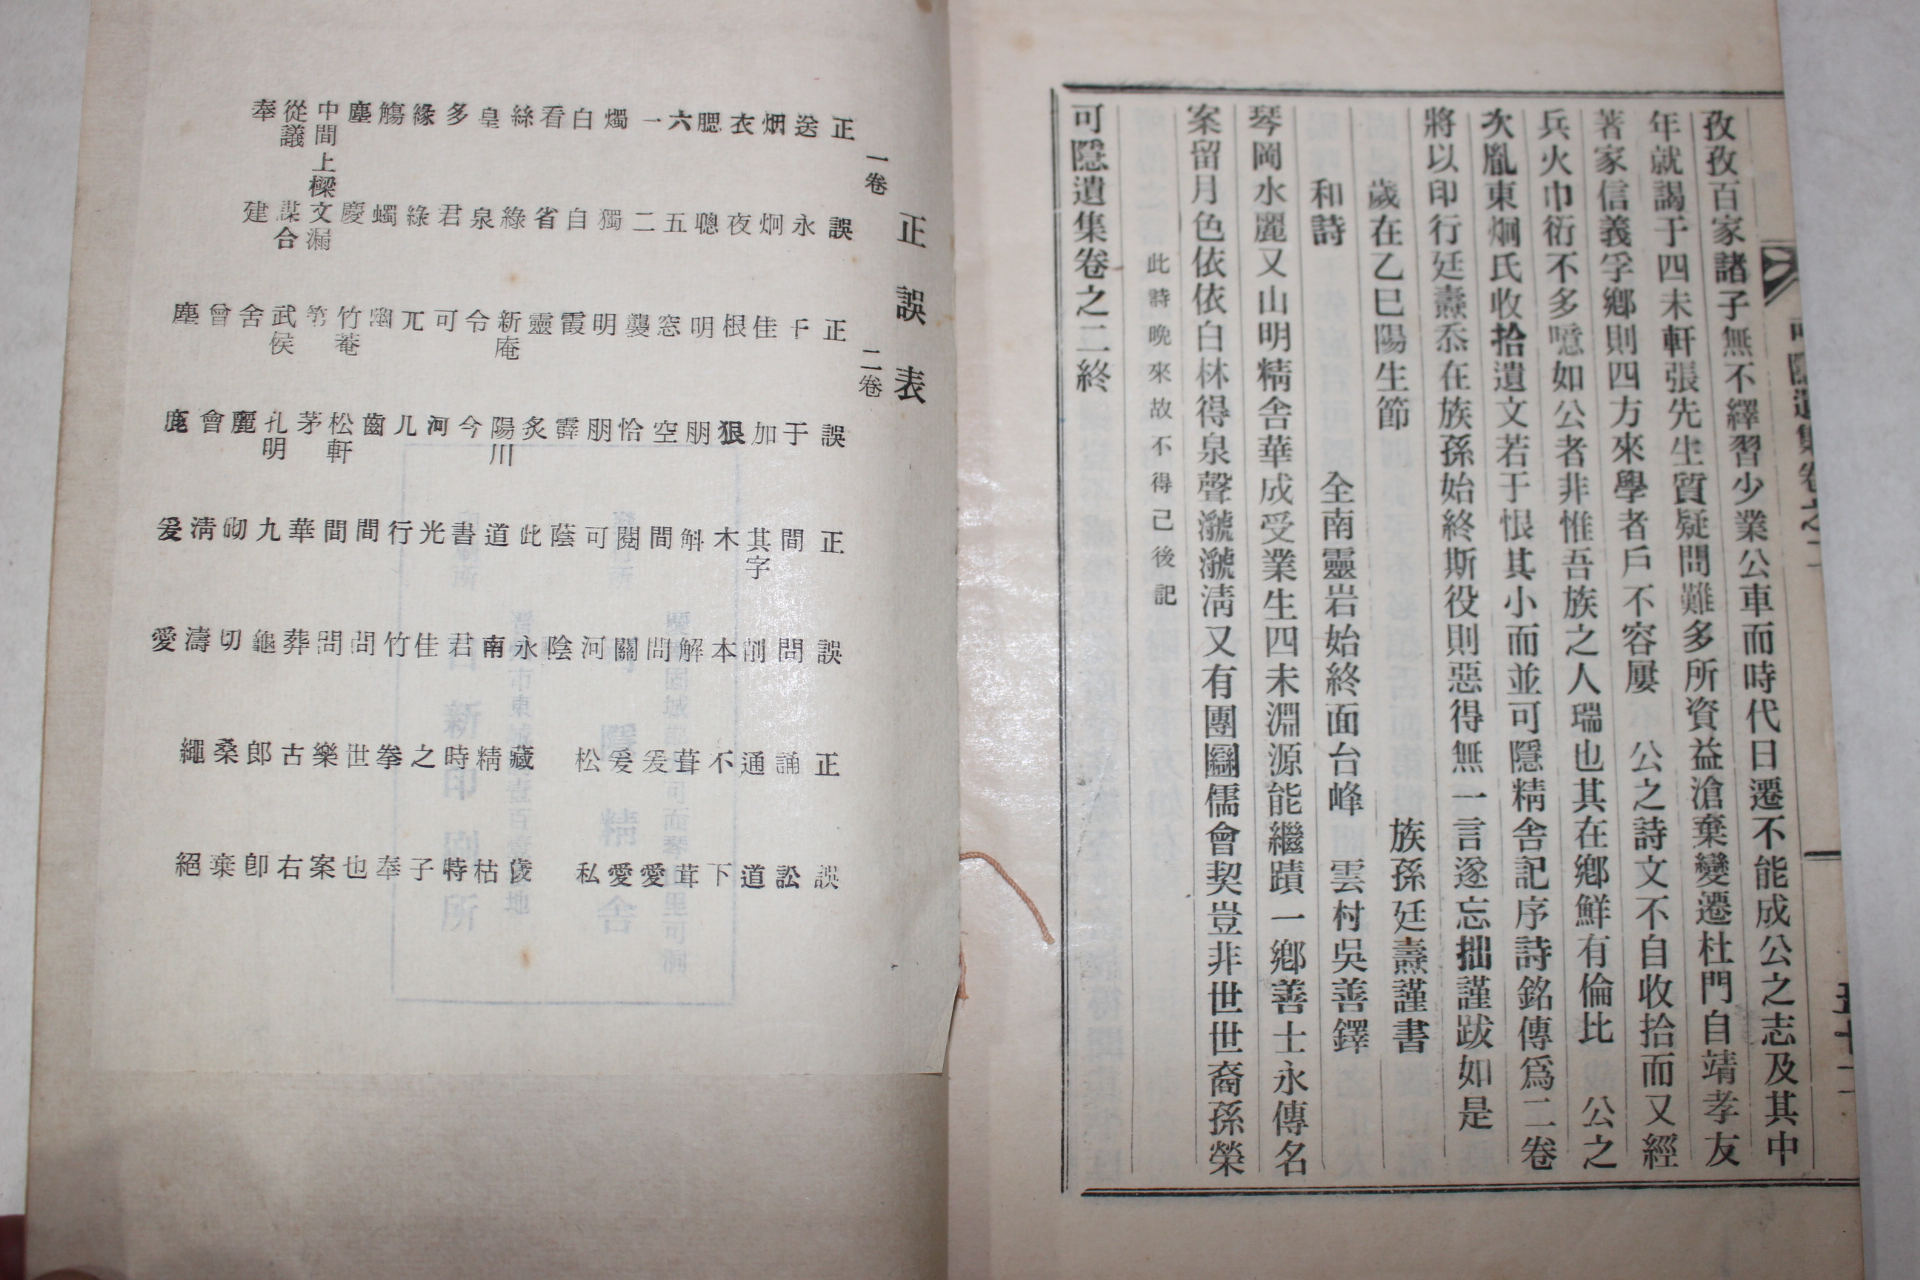 孜孜百家諸子無不繹習少業公車而時代日遷不能成公之志及其中
年就謁于四未軒張先生質疑問難多所資益滄棄變遷杜門自靖孝友
著家信義孚鄉則四方來學者戶不容屨 公之詩文不自收拾而又經
兵火巾衍不多噫如公者非惟吾族之人瑞也其在鄉鮮有倫比 公之
次胤東炯氏收拾遺文若于恨其小而並可隱精舍記序詩銘傳爲二卷
將以印行廷燾忝在族孫始終斯役則惡得無一言遂忘拙謹跋如是
歲在乙巳陽生節 族孫廷燾謹書
和詩 全南靈岩始終面台峰 雲村吳善鐸
琴岡水麗又山明精舍華成受業生四未淵源能繼蹟一鄉善士永傳名
案留月色依依白林得泉聲㶁㶁淸又有團圝儒會契豈非世世裔孫榮
此詩晩來故不得已後記
可隱遺集卷之二終
正誤表
一卷 二卷
正 誤 正 誤 正 誤 正 誤
送 永 干 于 間 問 誦 訟
炯 炯 佳 加 其字 削 通 道
衣 夜 根 狠 木 本 不 下
腮 聰 明 朋 斛 解 葺 茸
六 五 窓 空 間 問 爰 愛
一 二 龔 恰 閱 關 爰 愛
燭 獨 明 朋 可 河 松 私
白 自 霞 霹 蔭 陰
看 省 靈 炙 此 永 藏 歲
絲 綠 新庵 陽川 道 南 精 枯
皇 泉 令 今 書 君 時 特
多 君 可 河 光 佳 之 子
緣 綠 兀 儿 行 竹 拳 奉
觴 蠋 幽 齒 間 問 世 也
塵 慶 竹菴 松軒 間 問 樂 案
中間上樑文漏 第 茅 華 葬 古 右
從議 謀合 武侯 孔明 九 龜 郎 卽
奉 建 舍 麗 砌 切 桑 棄
曾 會 淸 濤 繩 絕
塵 鹿 爰 愛